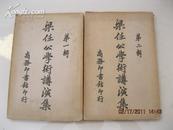 第一輯
梁任公學術講演集
商務印書館印行
第二輯
梁任公學術講演集
商務印書館印行
02/17/2011